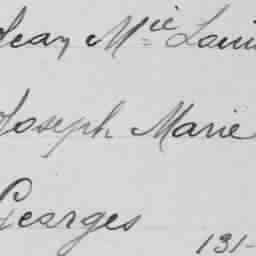 Jean Mie Louis
Joseph Marie
Georges
131-